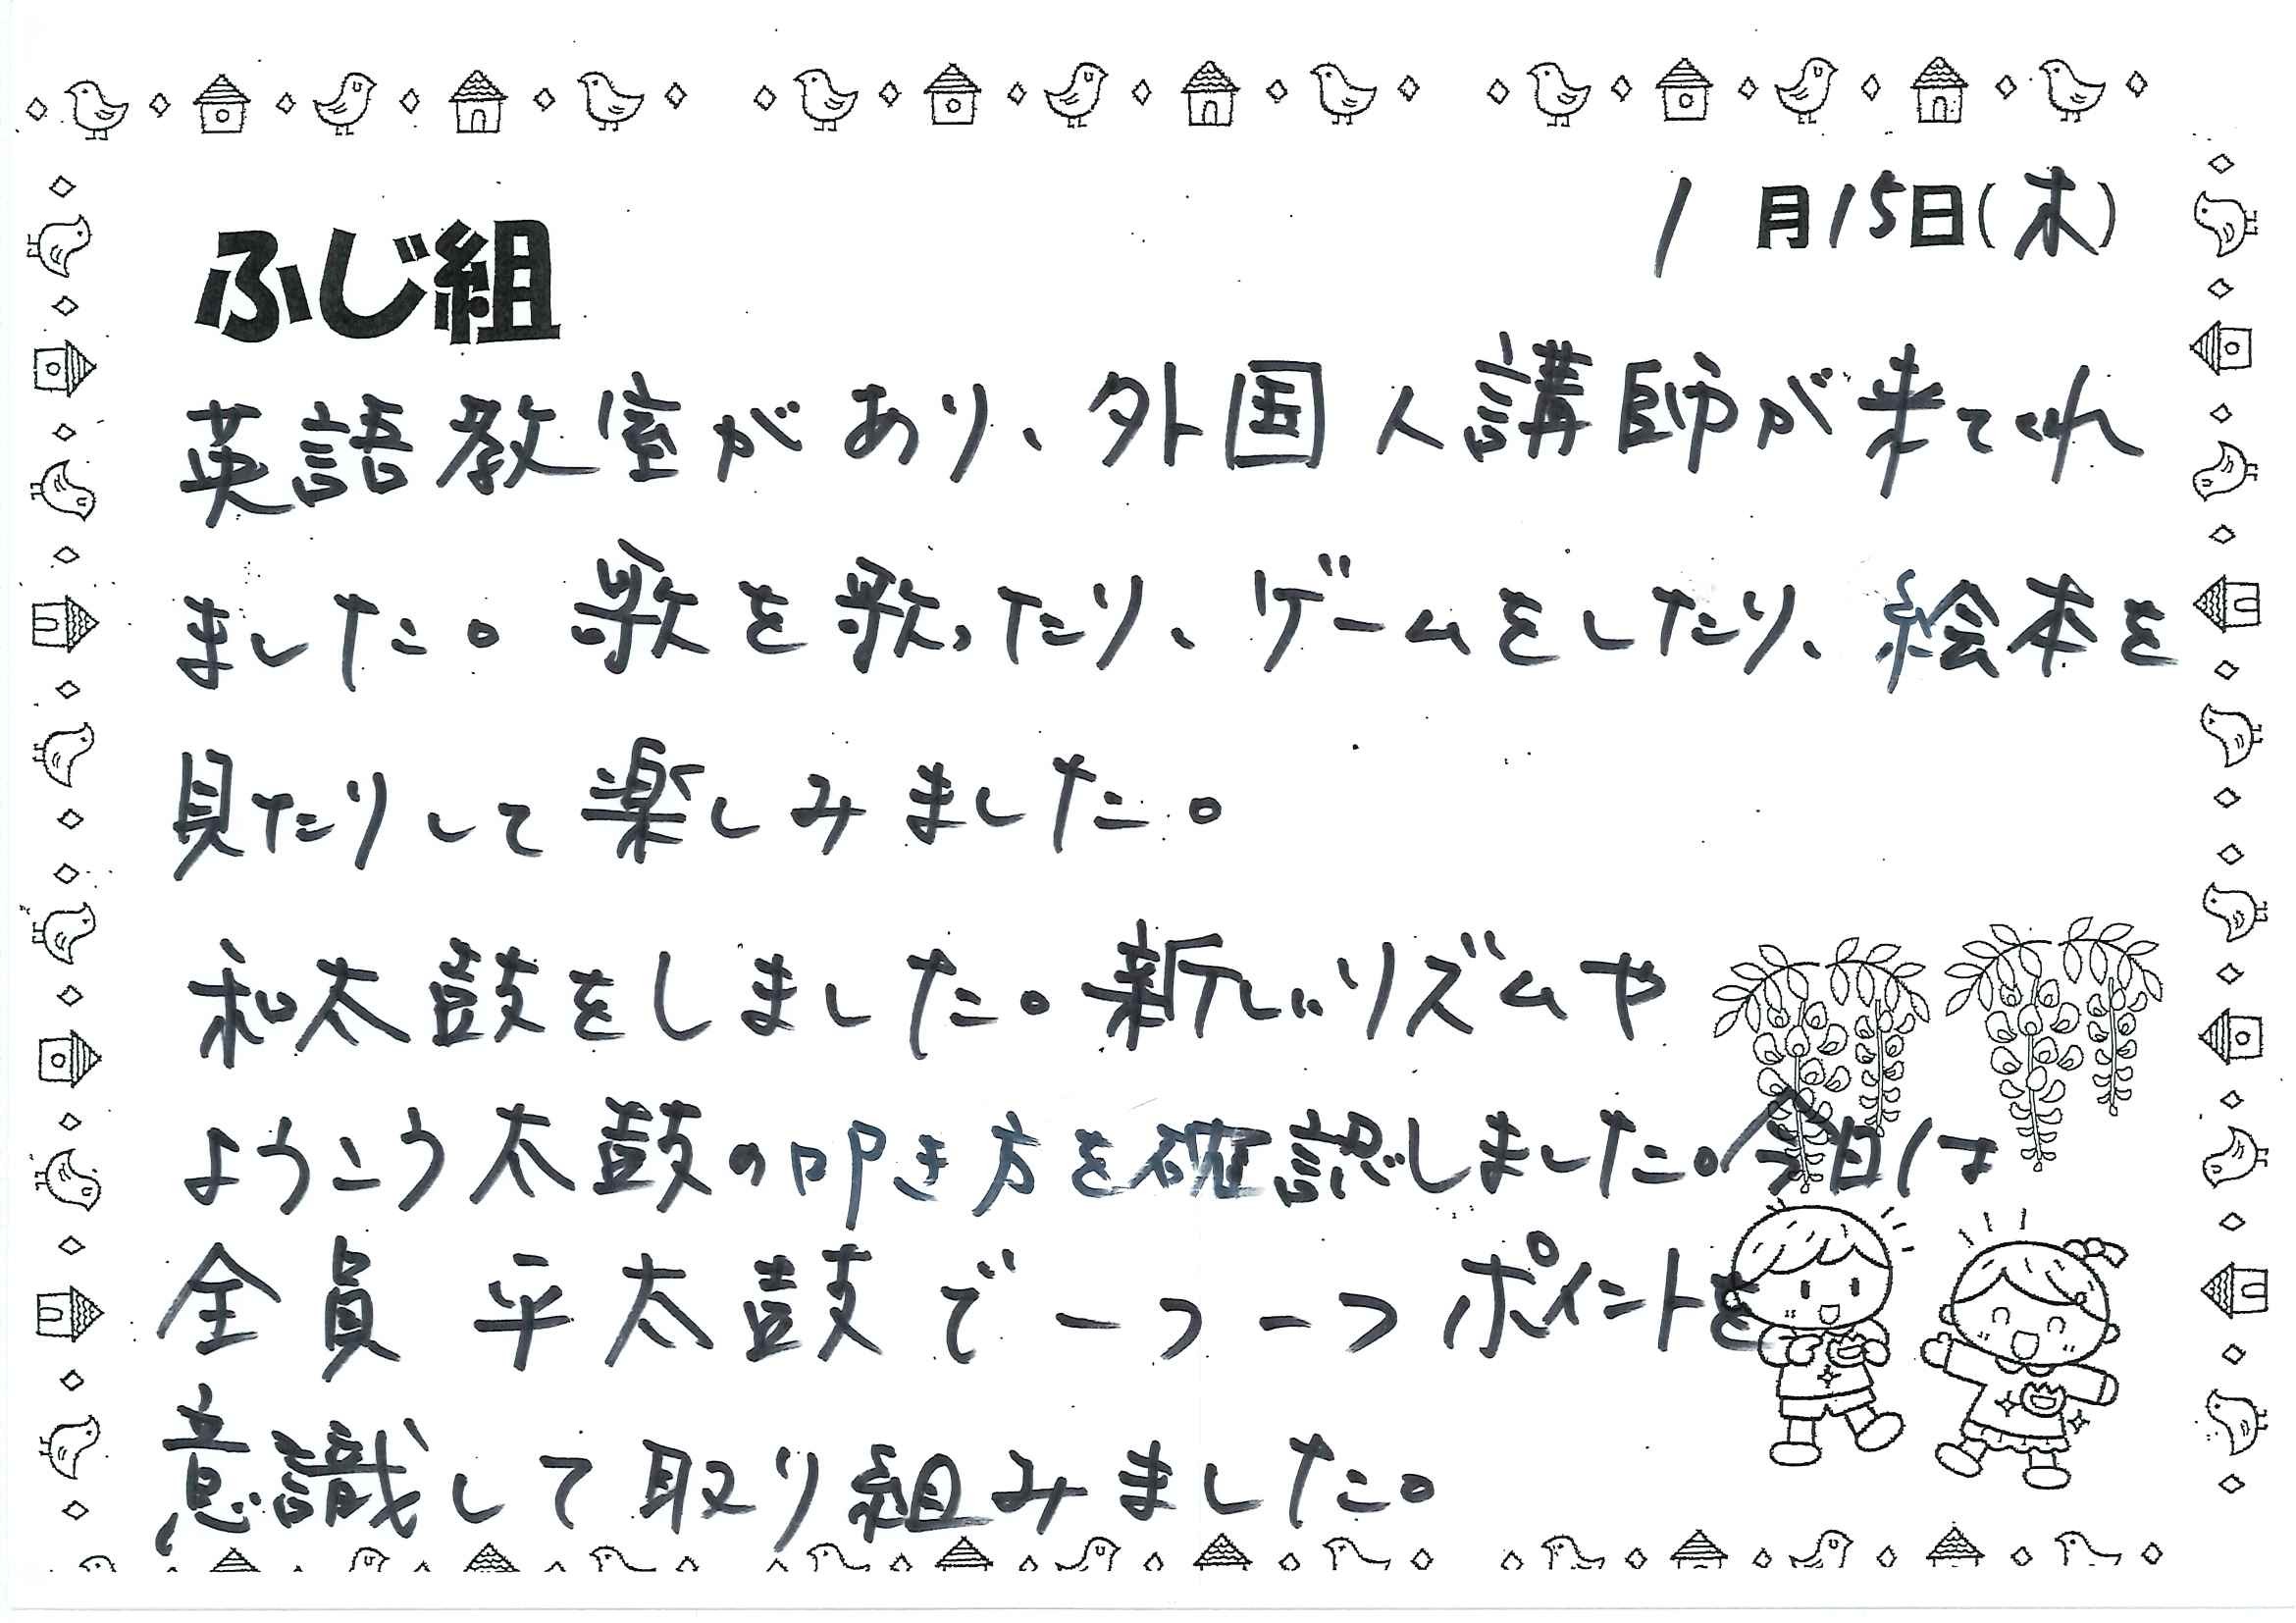 1月15日(木)
ふじ組
英語教室があり、外国人講師が来てくれ
ました。歌を歌ったり、ゲームをしたり、絵本を
見たりして楽しみました。
和太鼓をしました。新しいリズムや
ようこう太鼓の叩き方を確認しました。今日は
全員 平太鼓で一つ一つポイントを
意識して取り組みました。